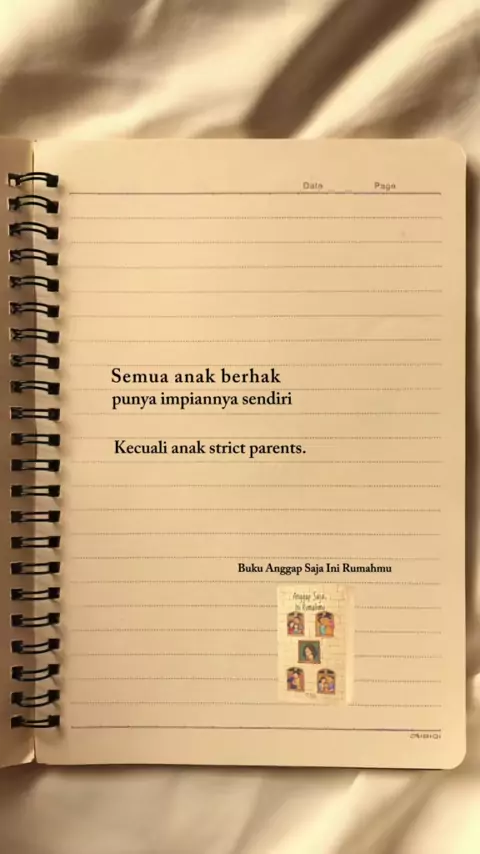 Date Page
Semua anak berhak
punya impiannya sendiri
Kecuali anak strict parents.
Buku Anggap Saja Ini Rumahmu
Anggap Saja
Ini Rumahmu